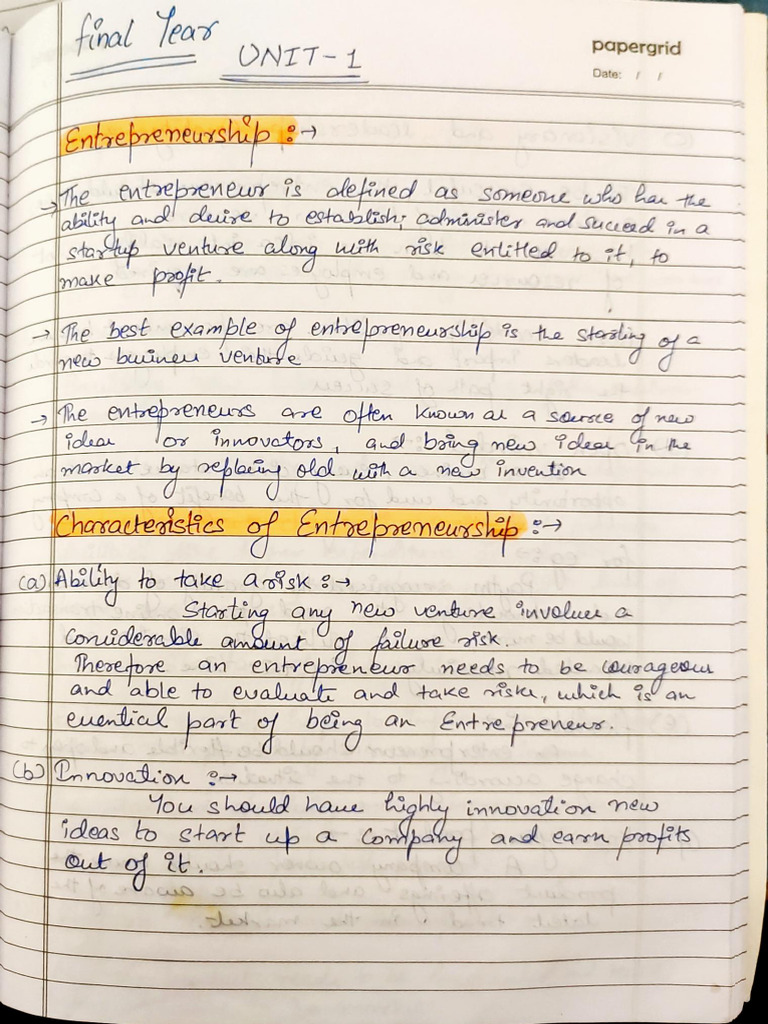 final Year
UNIT-1
papergrid
Date: / /
Entrepreneurship :→
→ The entrepreneur is defined as someone who has the
ability and desire to establish, administer and succeed in a
startup venture along with risk entitled to it, to
make profit.
→ The best example of entrepreneurship is the starting of a
new business venture
→ The entrepreneurs are often known as a source of new
ideas or innovators, and bring new ideas in the
market by replacing old with a new invention
Characteristics of Entrepreneurship :→
(a) Ability to take a risk :→
Starting any new venture involves a
considerable amount of failure risk.
Therefore an entrepreneur needs to be courageous
and able to evaluate and take risks, which is an
essential part of being an Entrepreneur.
(b) Innovation :→
You should have highly innovation new
ideas to start up a company and earn profits
out of it.